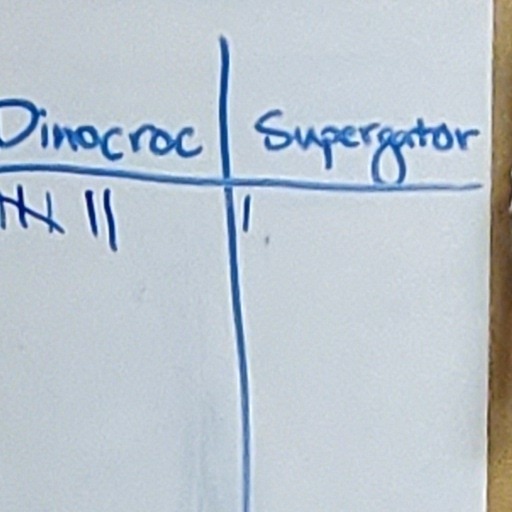 Dinocroc Supergator